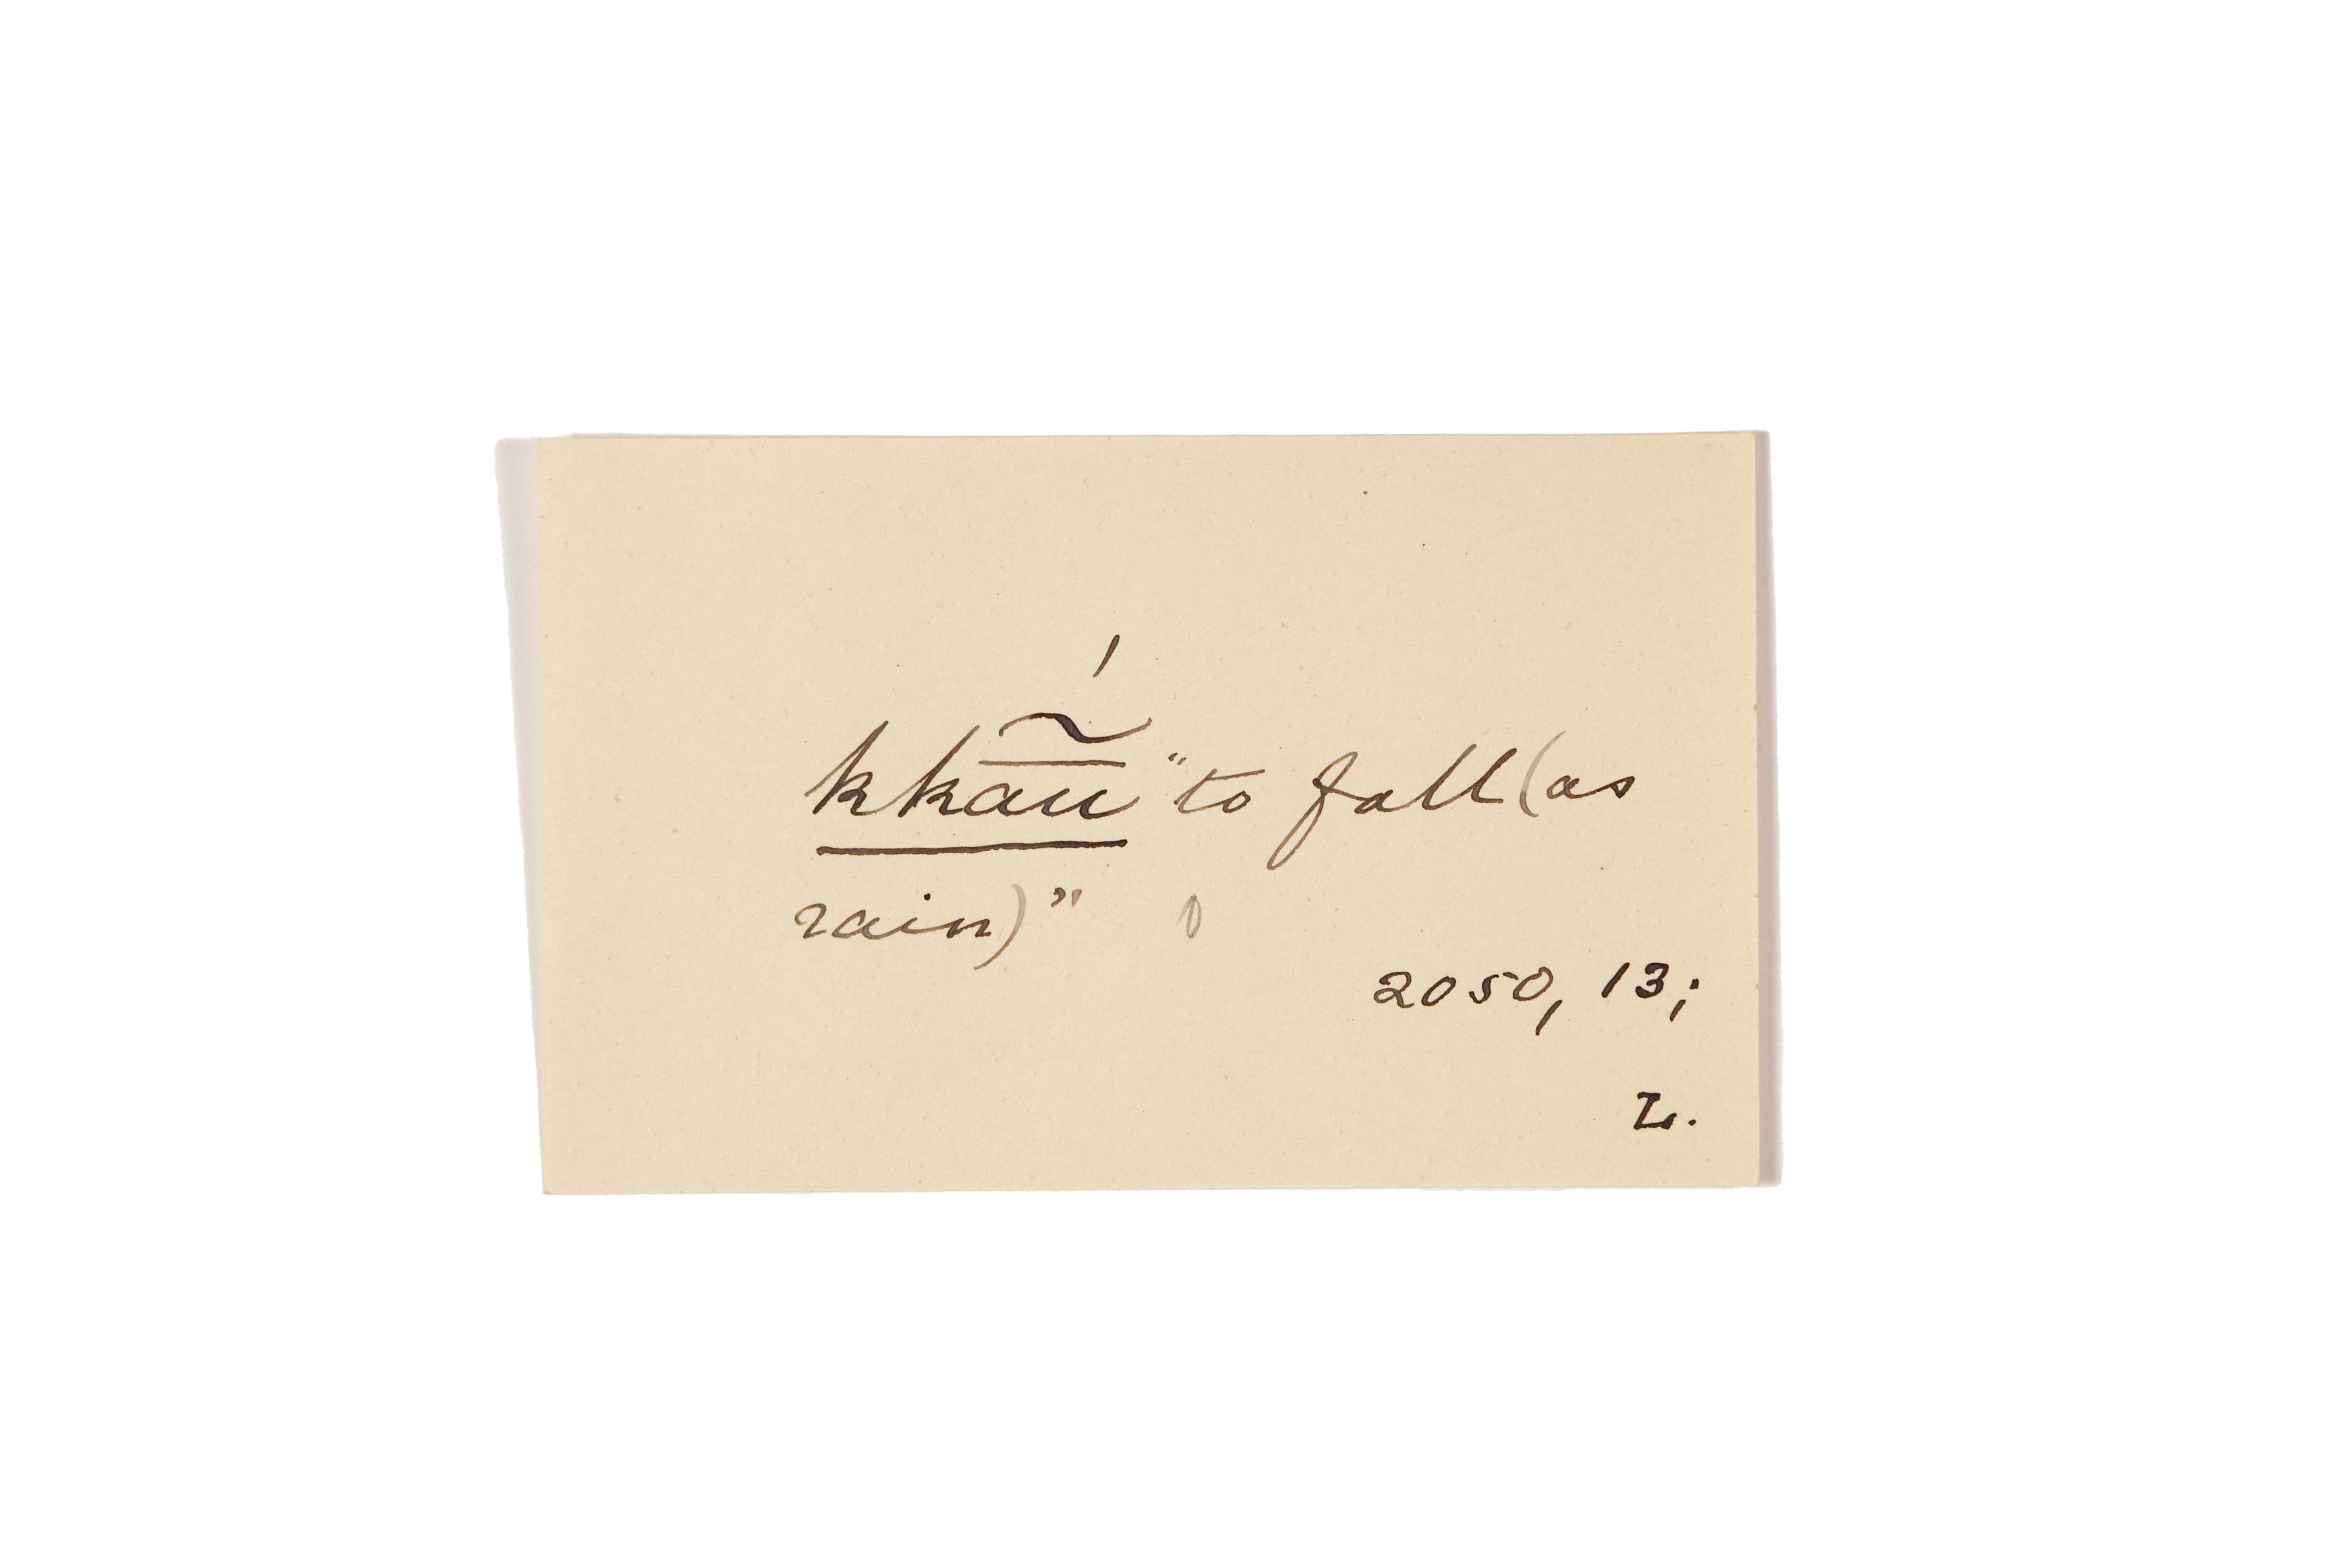 kkā̰̄ṹ "to fall (as
rain)"
2050, 13;
L.